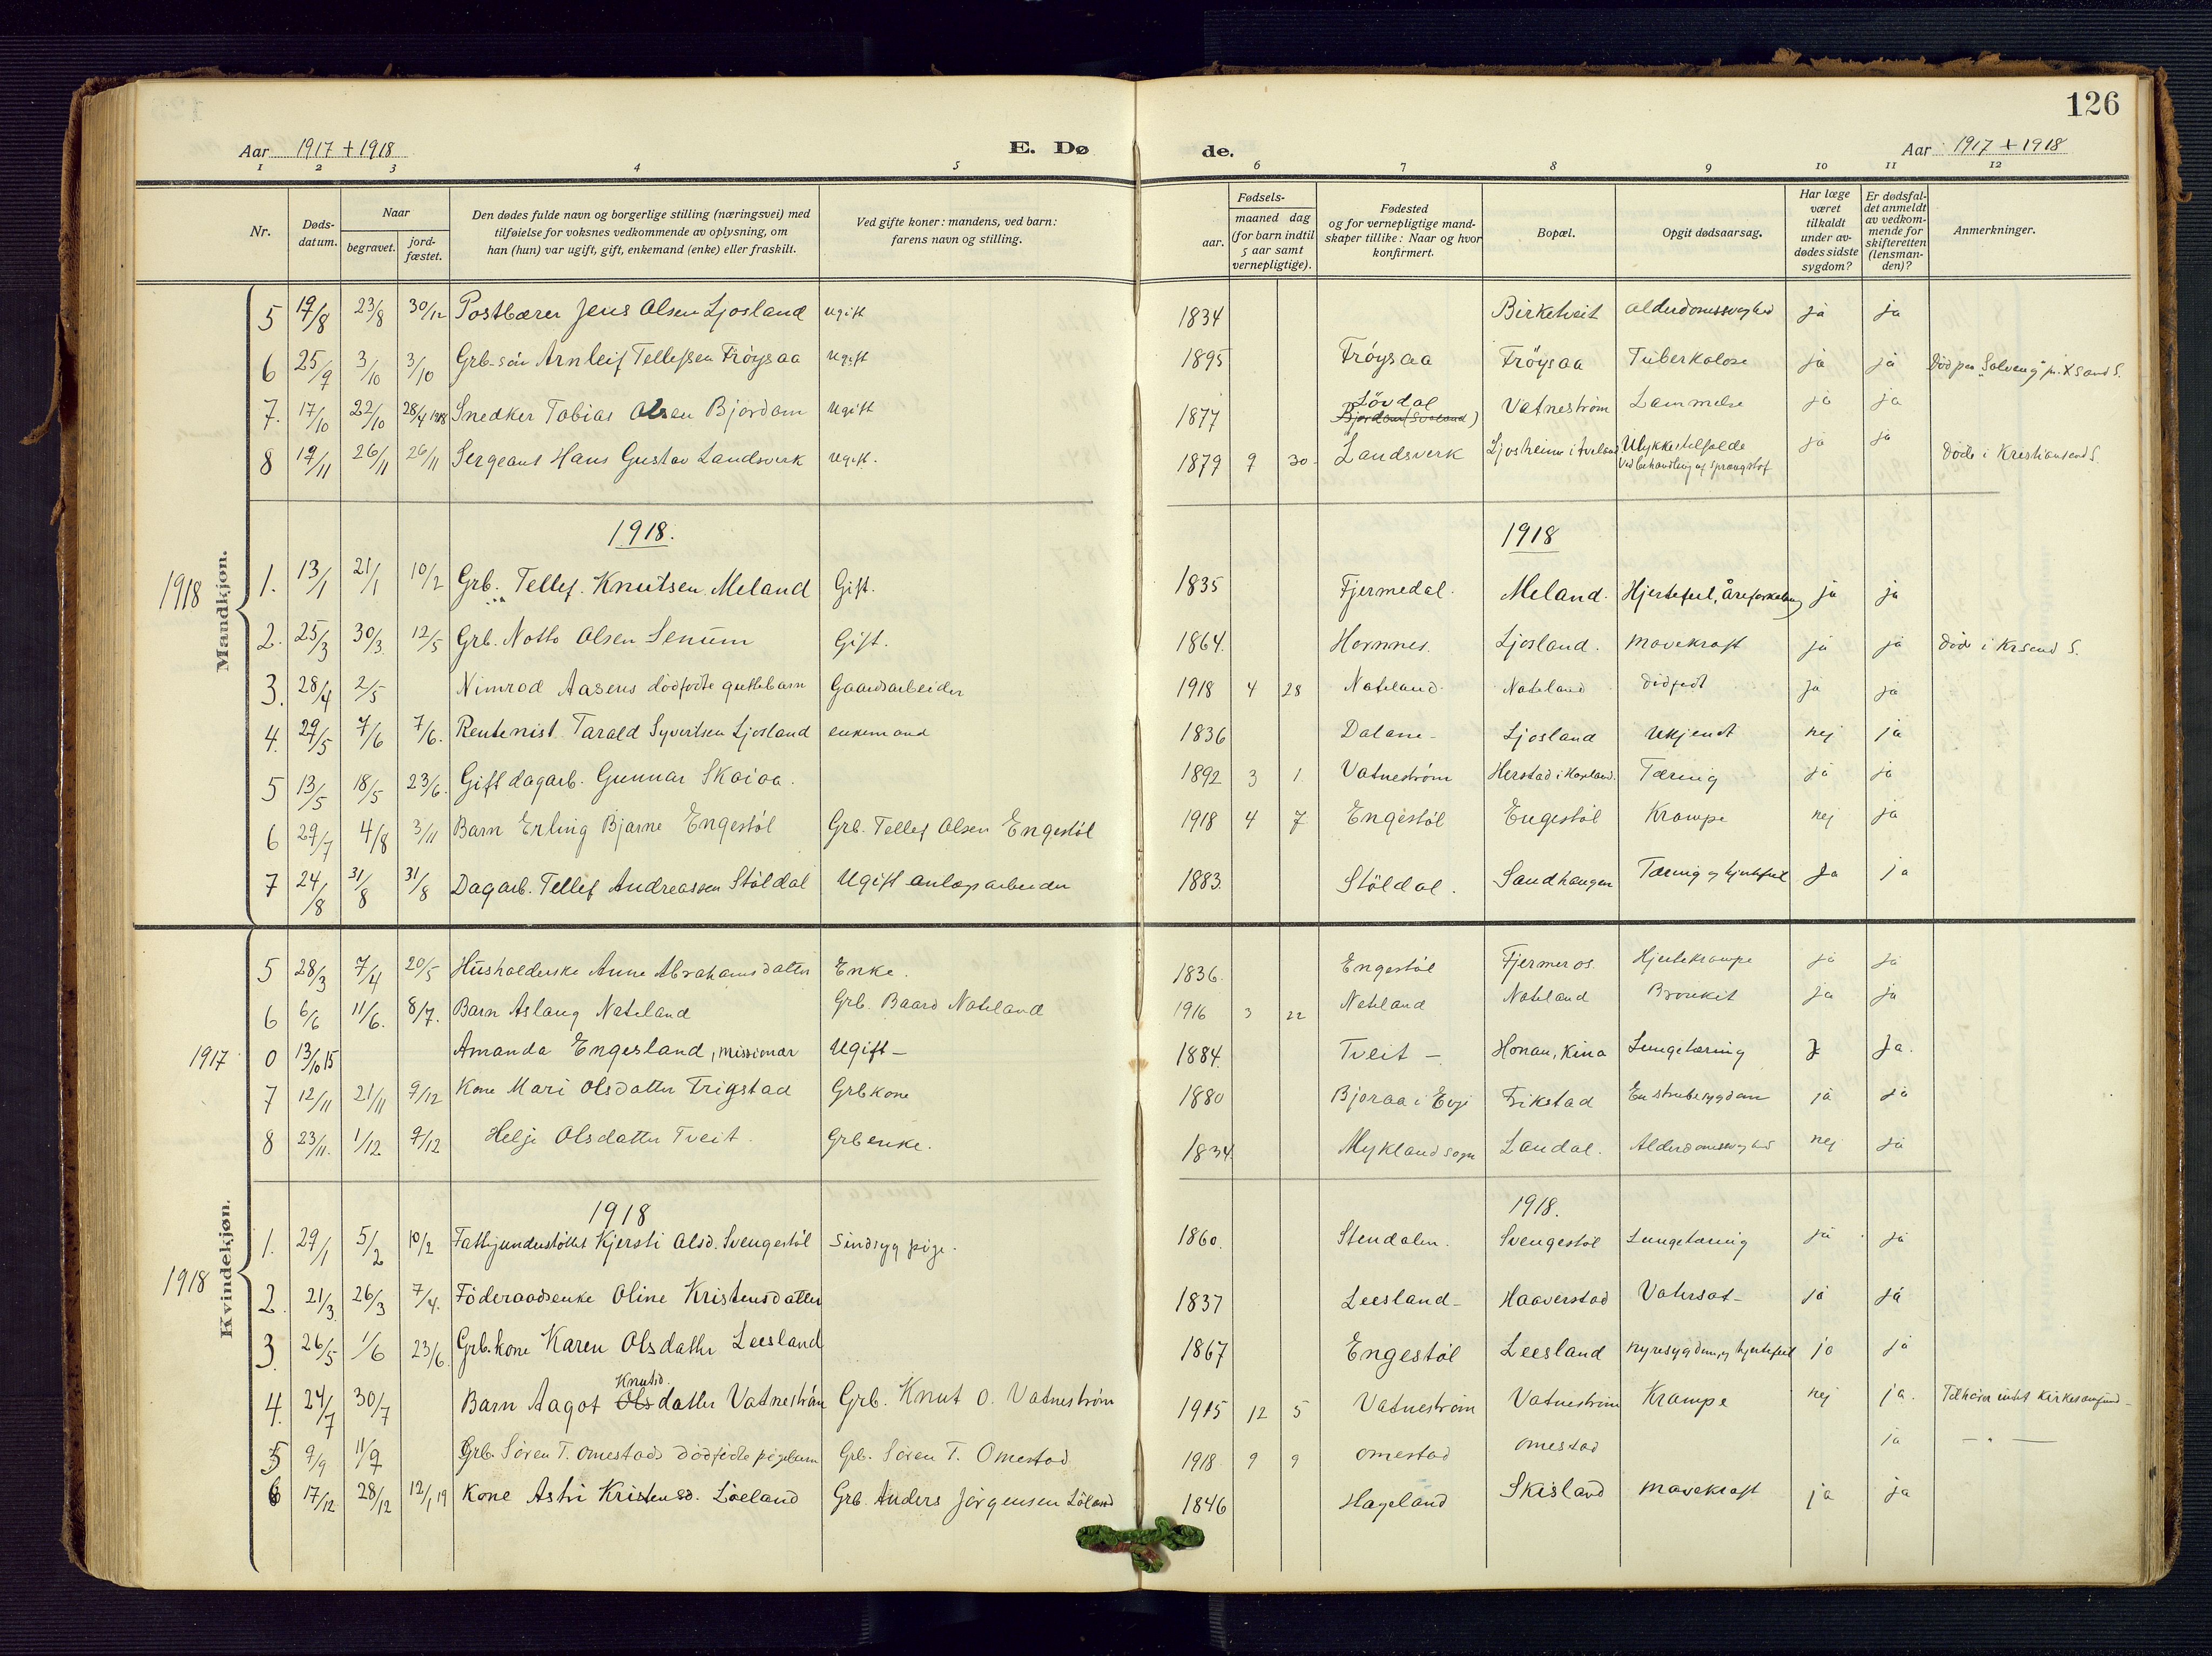 126
Aar 1917 + 1918 E. Dø de. Aar 1917 + 1918
1 2 3 4 5 6 7 8 9 10 11 12
Nr. Døds-datum. Naar begravet. jord-fæstet. Den dødes fulde navn og borgerlige stilling (næringsvei) med tilføielse for voksnes vedkommende av oplysning, om han (hun) var ugift, gift, enkemand (enke) eller fraskilt. Ved gifte koner: mandens, ved barn: farens navn og stilling. Fødsels- aar. maaned dag (for barn indtil 5 aar samt vernepligtige). Fødested og for vernepligtige mand-skaper tillike: Naar og hvor konfirmert. Bopæl. Opgit dødsaarsag. Har læge været tilkaldt under av-dødes sidste sygdom? Er dødsfal-det anmeldt av vedkom-mende for skifteretten (lensman-den)? Anmerkninger.
Mandkjøn.
5 19/8 23/8 30/12 Postbærer Jens Olsen Ljosland ugift 1834 Birketveit Alderdomssvaghed ja ja
6 25/9 3/10 3/10 Grb.søn Arnleif Tellefsen Frøysaa Ugift 1895 Frøysaa Frøysaa Tuberkolose ja ja Död paa "Solveng" pr. XSand S.
7. 17/10 22/10 28/4 1918 Snedker Tobias Olsen Bjordam Ugift 1877 Lövdal Bjordam (Sveland) Vatneström Lammelse ja ja
8 19/11 26/11 26/11 Sergeant Hans Gustav Landsverk Ugift. 1879 9 30 Landsverk Ljosheim i Iveland Ulykkestilfælde ved behandling af sprængstof ja ja Døde i Kristiansand S.
1918. 1918
1918
1. 13/1 21/1 10/2 Grb. Tellef. Knutsen Meland Gift. 1835 Fjermedal. Meland. Hjertefeil, Åreforkalkning ja ja
2. 25/3 30/3 12/5 Grb. Notto Olsen Senum Gift. 1864. Hornnes. Ljosland. Mavekræft ja ja Død i Krsand S.
3. 28/4 2/5 Nimrod Aasens dødfødte guttebarn Gaardsarbeider 1918 4 28 Nateland Nateland dødfødt ja ja
4. 29/5 7/6 7/6. Rentenist Tarald Syvertsen Ljosland enkemand 1836 Dalane Ljosland Ukjendt nej ja
5 13/5 18/5 23/6. Gift dagarb. Gunnar Skaiaa. 1892 3 1 Vatneström Herstad i Hægeland. Tæring ja ja
6 29/7 4/8 3/11 Barn Erling Bjarne Engestöl Grb. Tellef Olsen Engestöl 1918 4 7 Engestöl Engestöl Krampe nej ja
7 24/8 31/8 31/8 Dagarb. Tellef Andreassen Stöldal Ugift anlægsarbeider 1883. Stöldal. Sandhaugen Tæring og hjertefeil Ja ja
Kvindekjøn.
1917
5 28/3 7/4 20/5 Husholderske Anne Abrahamsdatter Enke. 1836. Engestöl Fjermeros. Hjertekrampe ja ja
6 6/6 11/6. 8/7. Barn Aslaug Nateland Grb. Baard Nateland 1916 3 22 Nateland Nateland Bronkit ja ja
0 13/10 15 Amanda Engesland, missionær Ugift 1884. Tveit Honan, Kina Lungetæring J Ja.
7 12/11 21/11 9/12 Kone Mari Olsdatter Frigstad Grbkone 1880 Bjoraa i Evje Frikstad En strubesygdom ja ja
8 23/11. 1/12 9/12 Helje Olsdatter Tveit. Grbenke. 1834. Mykland sogn Landal. Alderdomssvaghed nej ja
1918 1918.
1918
1. 29/1 5/2 10/2 Fattigunderstøttet Kjersti Olsd. Svengestöl Sindsyg pige. 1860. Stendalen. Svengestöl Lungetæring ja ja
2. 21/3. 26/3 7/4. Föderaadsenke Oline Kristensdatter 1837 Leesland Haaverstad Vatersot ja ja
3. 26/5 1/6 23/6. Grb.kone Karen Olsdatter Leesland 1867 Engestöl Leesland Nyresygdom og hjertefeil ja ja
4. 24/7 30/7 Barn Aagot Knutsd. Olsdatter Vatneström Grb. Knut O. Vatneström 1915 12 5 Vatneström Vatneström Krampe nej ja. Tilhører intet kirkesamfund
5 9/9 11/9 Grb. Sören T. Omestads dødfødte pigebarn Grb. Sören T. Omestad 1918 9 9 Omestad Omestad ja — " —
6 17/12 28/12 12/1 19 Kone Astri Kristensd. Löeland Grb. Anders Jörgensen Löland 1846 Hageland Skisland Mavekræft ja ja